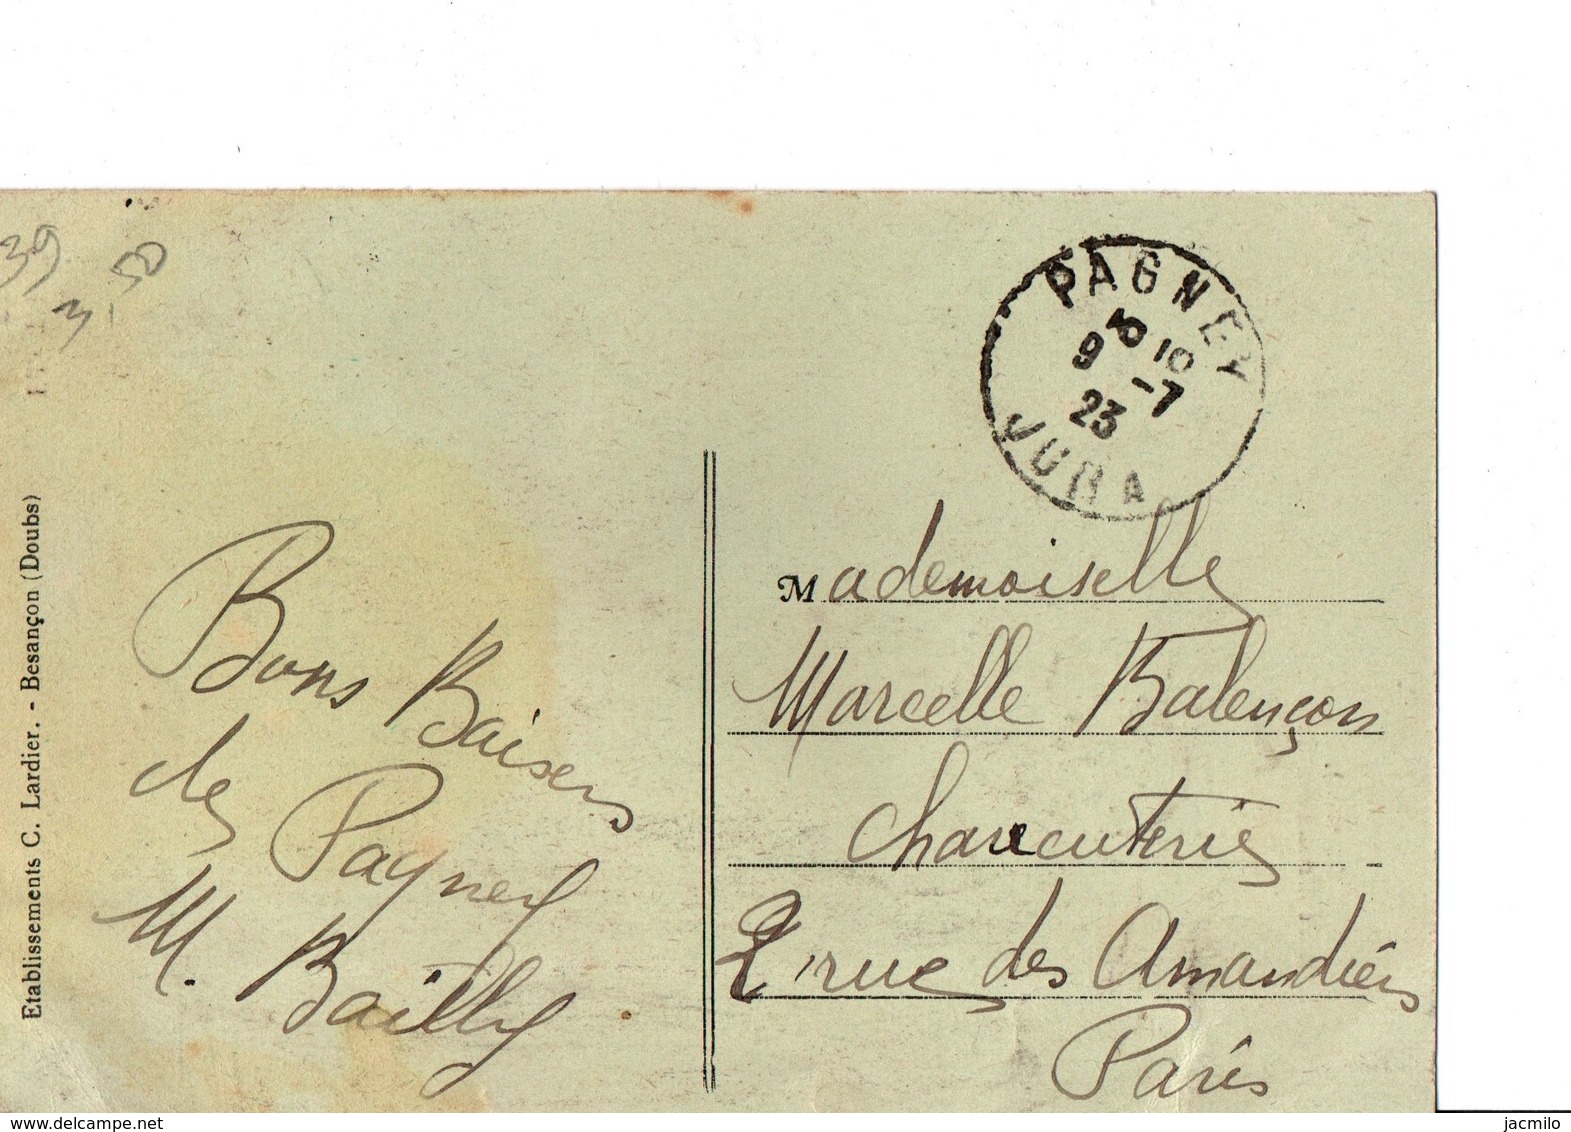 39
3-50
Etablissements C. Lardier. - Besançon (Doubs)
Bons Baisers
de Pagney
M. Bailly
PAGNEY
10
9 -7
23
JURA
Mademoiselle
Marcelle Balençon
Charcuterie
2 rue des Amandiers
Paris
delcampe.net
jacmilo